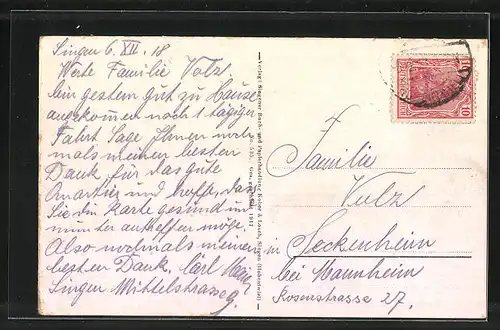 Singen 6. XII. 18
Werte Familie Volz
bin gestern gut zu Hause
angekommen nach 1 tägiger
Fahrt Sage Ihnen noch
mals meinen besten
Dank für das gute
Quartier und hoffe, daß
Sie die Karte gesund und
munter antreffen möge
Also nochmals meinen
besten Dank, Carl
Singen Mittelstrasse 9.
Verlag: Singener Buch- und Papierhandlung Kober & Lauch, Singen (Hohentwiel)
Familie
Volz
in Seckenheim
bei Mannheim
Rosenstrasse 27.
10
10
DEUTSCHES REICH